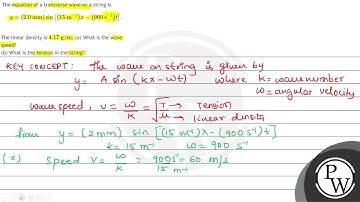 The equation of a transverse wave on a string is
y = (2.0 mm) sin [(15 m⁻¹)x − (900 s⁻¹)t].
The linear density is 4.17 g/m. (a) What is the wave
speed?
(b) What is the tension in the string?
KEY CONCEPT: The wave on string is given by
y = A sin (kx − ωt) where k = wavenumber
ω = angular velocity
wavespeed, v = ω/k = √T/μ → Tension
→ linear density
from y = (2mm) sin [(15 m⁻¹)x − (900 s⁻¹)t]
k = 15 m⁻¹ ω = 900 s⁻¹
(a) speed v = ω/k = 900s⁻¹/15 m⁻¹ = 60 m/s
P
W